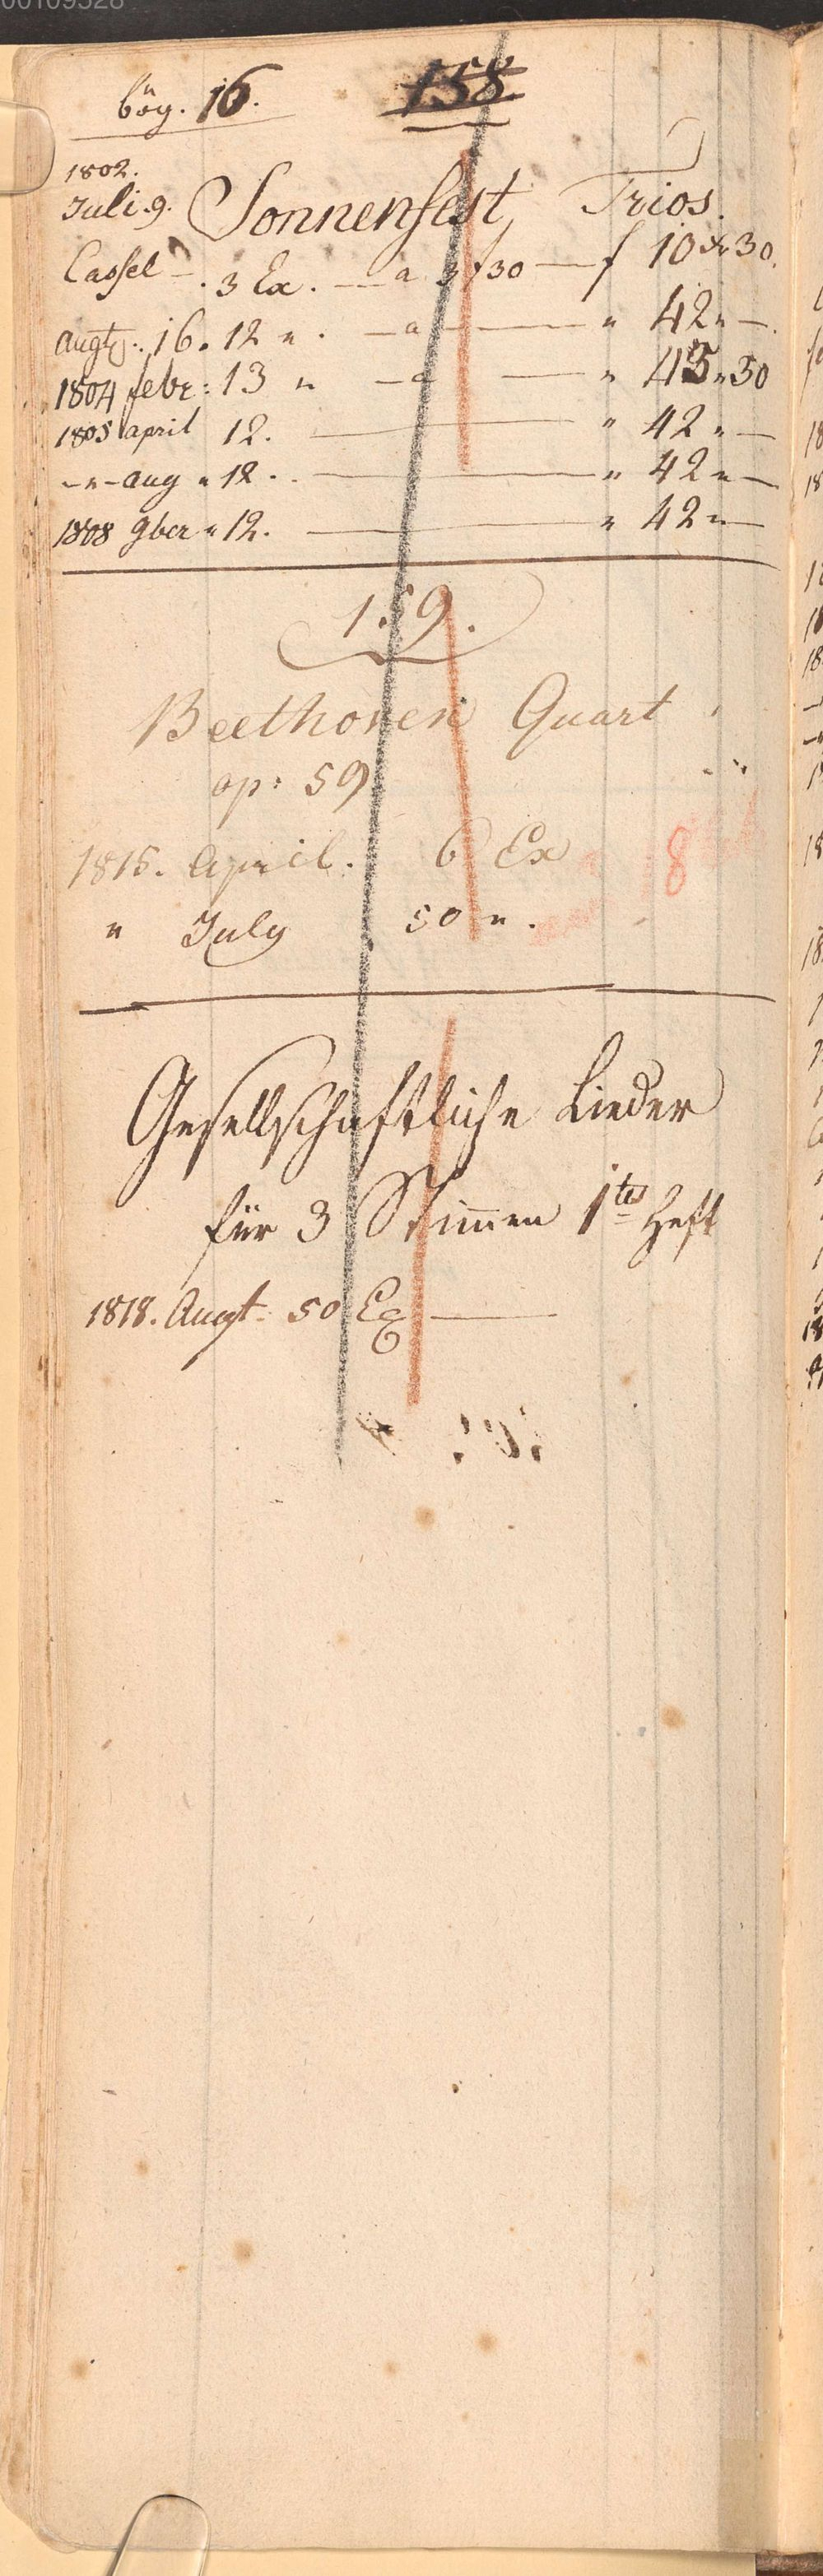 bög. 16. 158
1802.
Juli. 9. Sonnenfest Trios.
Cassel – . 3 Ex. — a 3f30 — f 10 xr 30.
augt: 16. 12 " . — a — " 42 " —.
1804 febr: 13 " — a — " 45 " 30
1805 april 12. — " 42 " —
– " – aug " 12 . . — " 42 " —
1808 9ber " 12. — " 42 " —
159.
Beethoven Quart
op: 59
1815. April. 6 Ex 8
" July 50 " .
Gesellschaftliche Lieder
für 3 Stimmen 1tes Heft
1818. Augt. 50 Ex —